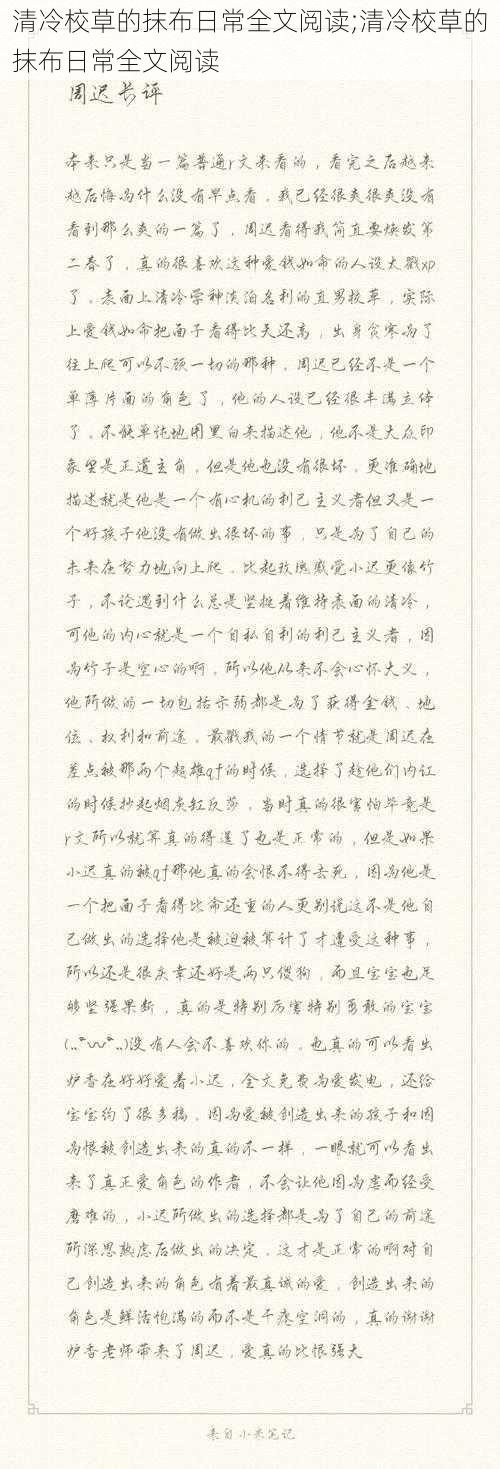 清冷校草的抹布日常全文阅读;清冷校草的
抹布日常全文阅读
周迟长评
本来只是当一篇普通r文来看的，看完之后越来
越后悔为什么没有早点看。我已经很爽很爽没有
看到那么爽的一篇了，周迟看得我简直要焕发第
二春了，真的很喜欢这种爱钱如命的人设大戳xp
了。表面上清冷学神淡泊名利的直男校草，实际
上爱钱如命把面子看得比天还高，出身贫寒为了
往上爬可以不顾一切的那种。周迟已经不是一个
单薄片面的角色了，他的人设已经很丰满立体
了。不能单纯地用黑白来描述他，他不是大众印
象里是正道主角，但是他也没有很坏。更准确地
描述就是他是一个有心机的利己主义者但又是一
个好孩子他没有做出很坏的事，只是为了自己的
未来在努力地向上爬。比起玫瑰感觉小迟更像竹
子，不论遇到什么总是坚挺着维持表面的清冷，
可他的内心就是一个自私自利的利己主义者，因
为竹子是空心的啊。所以他从来不会心怀大义，
他所做的一切包括示弱都是为了获得金钱、地
位、权利和前途。最戳我的一个情节就是周迟在
差点被那两个超雄qf的时候，选择了趁他们内讧
的时候抄起烟灰缸反莎。当时真的很害怕毕竟是
r文所以就算真的得逞了也是正常的，但是如果
小迟真的被qf那他真的会恨不得去死，因为他是
一个把面子看得比命还重的人更别说这不是他自
己做出的选择他是被迫被算计了才遭受这种事，
所以还是很庆幸还好是两只傻狗，而且宝宝也足
够坚强果断，真的是特别厉害特别勇敢的宝宝
(｡･ω･｡)没有人会不喜欢你的。也真的可以看出
炉香在好好爱着小迟，全文免费为爱发电，还给
宝宝约了很多稿。因为爱被创造出来的孩子和因
为恨被创造出来的真的不一样，一眼就可以看出
来了真正爱角色的作者，不会让他因为虐而经受
磨难的，小迟所做出的选择都是为了自己的前途
所深思熟虑后做出的决定。这才是正常的啊对自
己创造出来的角色有着最真诚的爱，创造出来的
角色是鲜活饱满的而不是干瘪空洞的，真的谢谢
炉香老师带来了周迟，爱真的比恨强大
来自小米笔记